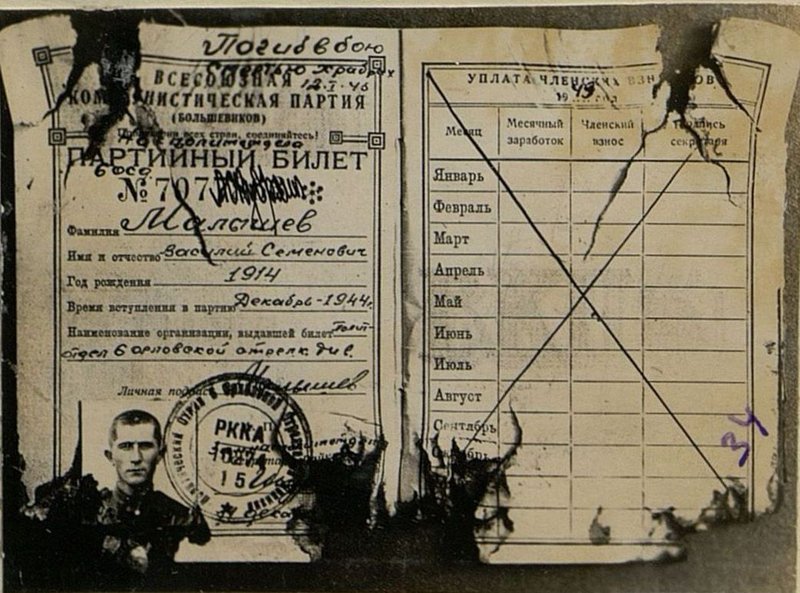 Погиб в бою
Смертью храбрых
12-I-45
ВСЕСОЮЗНАЯ
КОММУНИСТИЧЕСКАЯ ПАРТИЯ
(БОЛЬШЕВИКОВ)
всех стран, соединяйтесь!
ПАРТИЙНЫЙ БИЛЕТ
№ 707
Фамилия Малышев
Имя и отчество Василий Семенович
Год рождения 1914
Время вступления в партию Декабрь-1944г.
Наименование организации, выдавшей билет Полит
отдел 6 орловской стрелк. див.
Личная подпись Малышев
РККА
1027
15
УПЛАТА ЧЛЕНСКИХ ВЗНОСОВ
Месяц Месячный заработок Членский взнос Подпись секретаря
Январь
Февраль
Март
Апрель
Май
Июнь
Июль
Август
Сентябрь
34